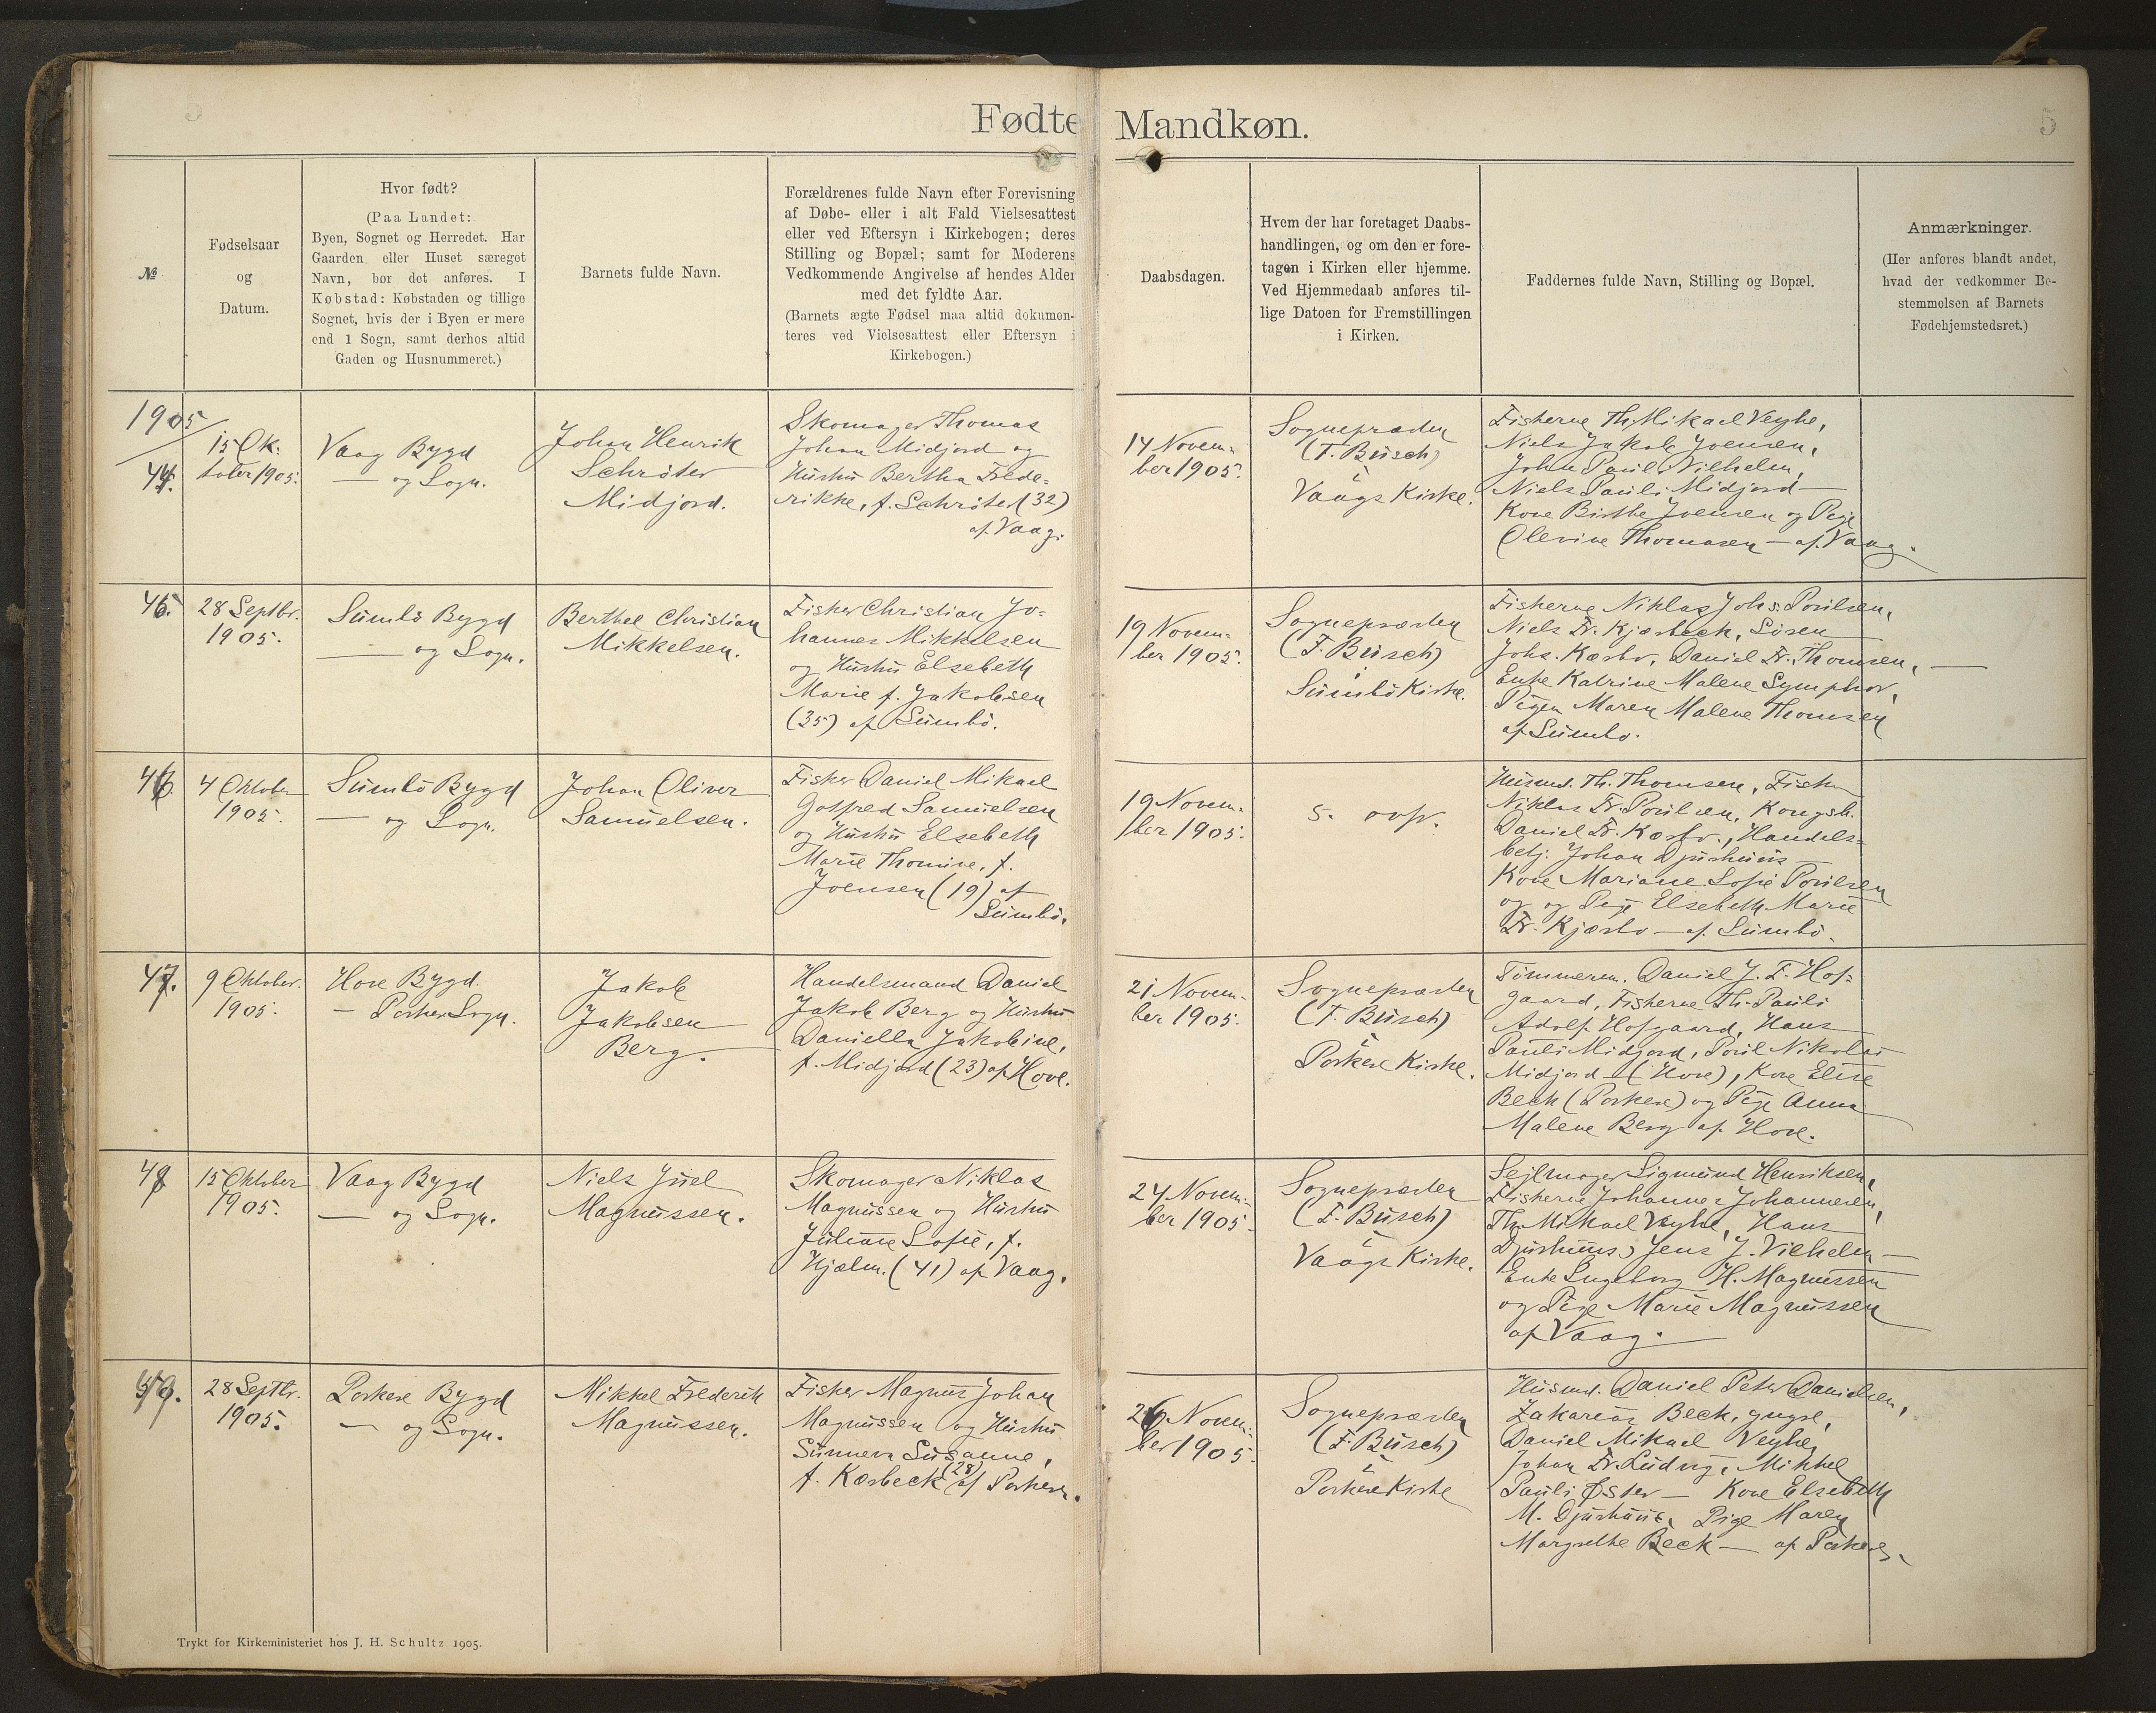 5
Fødte Mandkøn.
5
№
Fødselsaar
og
Datum.
Hvor født?
(Paa Landet:
Byen, Sognet og Herredet. Har
Gaarden eller Huset særeget
Navn, bør det anføres. I
Købstad: Købstaden og tillige
Sognet, hvis der i Byen er mere
end 1 Sogn, samt derhos altid
Gaden og Husnummeret.)
Barnets fulde Navn.
Forældrenes fulde Navn efter Forevisning
af Døbe- eller i alt Fald Vielsesattest
eller ved Eftersyn i Kirkebogen; deres
Stilling og Bopæl; samt for Moderens
Vedkommende Angivelse af hendes Alder
med det fyldte Aar.
(Barnets ægte Fødsel maa altid dokumen-
teres ved Vielsesattest eller Eftersyn i
Kirkebogen.)
Daabsdagen.
Hvem der har foretaget Daabs-
handlingen, og om den er fore-
tagen i Kirken eller hjemme.
Ved Hjemmedaab anføres til-
lige Datoen for Fremstillingen
i Kirken.
Faddernes fulde Navn, Stilling og Bopæl.
Anmærkninger.
(Her anføres blandt andet,
hvad der vedkommer Be-
stemmelsen af Barnets
Fødehjemstedsret.)
1905
44.
15 Ok-
tober 1905.
Vaag Bygd
— og Sogn.
Johan Henrik
Schrøter
Midjord.
Skomager Thomas
Johan Midjord og
Hustru Bertha Frede-
rikke, f. Schrøter (32)
af Vaag.
14 Novem-
ber 1905.
Sognepræsten
(F. Busch)
i
Vaags Kirke.
Fiskerne Th. Mikael Veyhe,
Niels Jakob Joensen,
Johan Pauli Vilhelm,
Niels Pauli Midjord —
Kone Birthe Joensen og Pige
Olevine Thomasen — af Vaag.
45.
28 Septbr.
1905.
Sumbö Bygd
— og Sogn.
Berthel Christian
Mikkelsen.
Fisker Christian Jo-
hannes Mikkelsen
og Hustru Elsebeth
Marie f. Jakobsen
(35) af Sumbö.
19 Novem-
ber 1905.
Sognepræsten
(F. Busch)
i
Sumbö Kirke.
Fiskerne Niklas Johs. Poulsen,
Niels Fr. Kjærbeck, Sören
Johs. Kærbo, Daniel Fr. Thomsen, —
Enke Katrine Malene Symphor,
Pigen Maren Malene Thomsen
af Sumbo.
46
4 Oktober
1905.
Sumbö Bygd
— og Sogn.
Johan Oliver
Samuelsen.
Fisker Daniel Mikael
Gotfred Samuelsen
og Hustru Elsebeth
Marie Thomine, f.
Joensen (19) af
Sumbö.
19 Novem-
ber 1905.
s. ovfr.
Husmd. Th. Thomsen, Fisker
Niklas Fr. Poulsen, Kongsb.
Daniel Fr. Kærbo, Handels-
betj. Johan Djurhuus —
Kone Mariane Sofie Poulsen
og og Pige Elsebeth Marie
Fr. Kjærbo — af Sumbö.
47.
9 Oktober.
1905.
Hove Bygd.
— Porkere Sogn.
Jakob
Jakobsen
Berg.
Handelsmand Daniel
Jakob Berg og Hustru
Daniella Jakobine,
f. Midjord (23) af Hove.
21 Novem-
ber 1905.
Sognepræsten
(F. Busch)
i
Porkere Kirke.
Tömmerm. Daniel J. F. Hof-
gaard, Fiskerne Th. Pauli
Adolf Hofgaard, Hans
Pauli Midjord, Poul Nikolai
Midjord — (Hove), Kone Elise
Beck (Porkere) og Pige Anna
Malene Berg af Hove.
48
15 Oktober
1905.
Vaag Bygd
— og Sogn.
Niels Juel
Magnussen.
Skomager Niklas
Magnussen og Hustru
Juliane Sofie, f.
Hjælm. (41) af Vaag.
24 Novem-
ber 1905.
Sognepræsten
(F. Busch)
i
Vaags Kirke.
Sejlmager Sigmund Henriksen,
Fiskerne Johannes Johannesen,
Th. Mikael Veyhe, Hans
Djurhuus, Jens J. Vilhelm —
Enke Ingeborg H. Magnussen
og Pige Marie Magnussen
af Vaag.
49.
28 Septbr.
1905.
Porkere Bygd
— og Sogn.
Mikkel Frederik
Magnussen.
Fisker Magnus Johan
Magnussen og Hustru
Sunneva Susanne,
f. Kærbeck (28) af Porkere.
26 Novem-
ber 1905.
Sognepræsten
(F. Busch)
i
Porkere Kirke
Husmd. Daniel Peter Danielsen,
Zakarias Beck, yngre,
Daniel Mikael Veyhe,
Johan Fr. Ludvig, Mikkel
Pauli Øster — Kone Elsebeth
M. Djurhuus, Pige Maren
Margrethe Beck — af Porkere.
Trykt for Kirkeministeriet hos J. H. Schultz 1905.